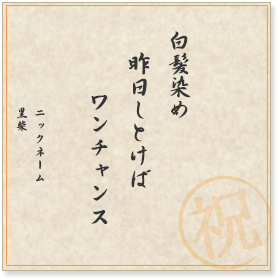 白髪染め
昨日しとけば
ワンチャンス
ニックネーム
黒柴
祝